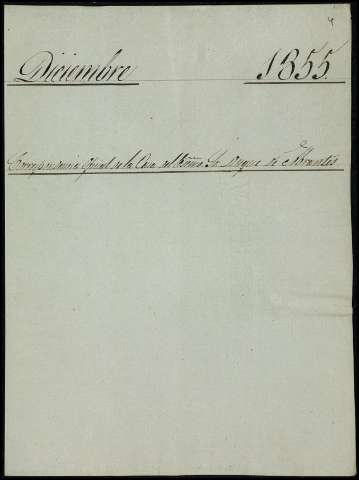 4
Diciembre 1855.
Correspondencia oficial de la Casa del Excmo. Sr. Duque de Abrantes